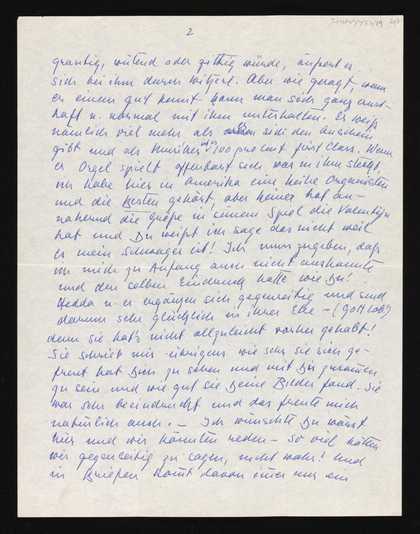 2
grantig, wütend oder giftig würde, äußert er
sich bei ihm durch Witzerl. Aber wie gesagt, wenn
er einem gut kennt - kann man sich ganz ernst-
haft u. normal mit ihm unterhalten. Er weiß
nämlich viel mehr, als er sich den Anschein
gibt und als Musiker ist er 100 prozent first class. Wenn
er Orgel spielt, offenbart sich, was in ihm steckt,
ich habe hier in Amerika eine Reihe Organisten
und die besten gehört, aber keiner hat an-
nähernd die größe in seinem Spiel die Valentijn
hat und Du weißt ich sage das nicht weil
er mein Schwager ist! Ich muss zugeben, daß
ich mich zu Anfang auch nicht auskannte
und den selben Eindruck hatte wie Du!
Hedda u. er ergänzen sich gegenseitig und sind
darum sehr glücklich in ihrer Ehe - (gottlob)
denn sie hat's nicht allzuleicht vorher gehabt!
Sie schrieb mir übrigens wie sehr sie sich ge-
freut hat Dich zu sehen und mit Dir zusammen
zu sein und wie gut sie Deine Bilder fand. Sie
war sehr beeindruckt und das freute mich
natürlich auch. - Ich wünschte Du wärst
hier und wir könnten reden - so viel hätten
wir gegenseitig zu sagen, nicht wahr! Und
in Briefen kommt davon immer nur ein